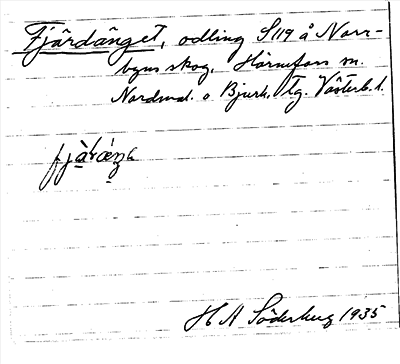 Fjärdänget, odling S 119 å Norr-
byns skog. Hörnefors sn.
Nordmal. o Bjurh. Tg. Västerb. l.
H A Söderberg 1935